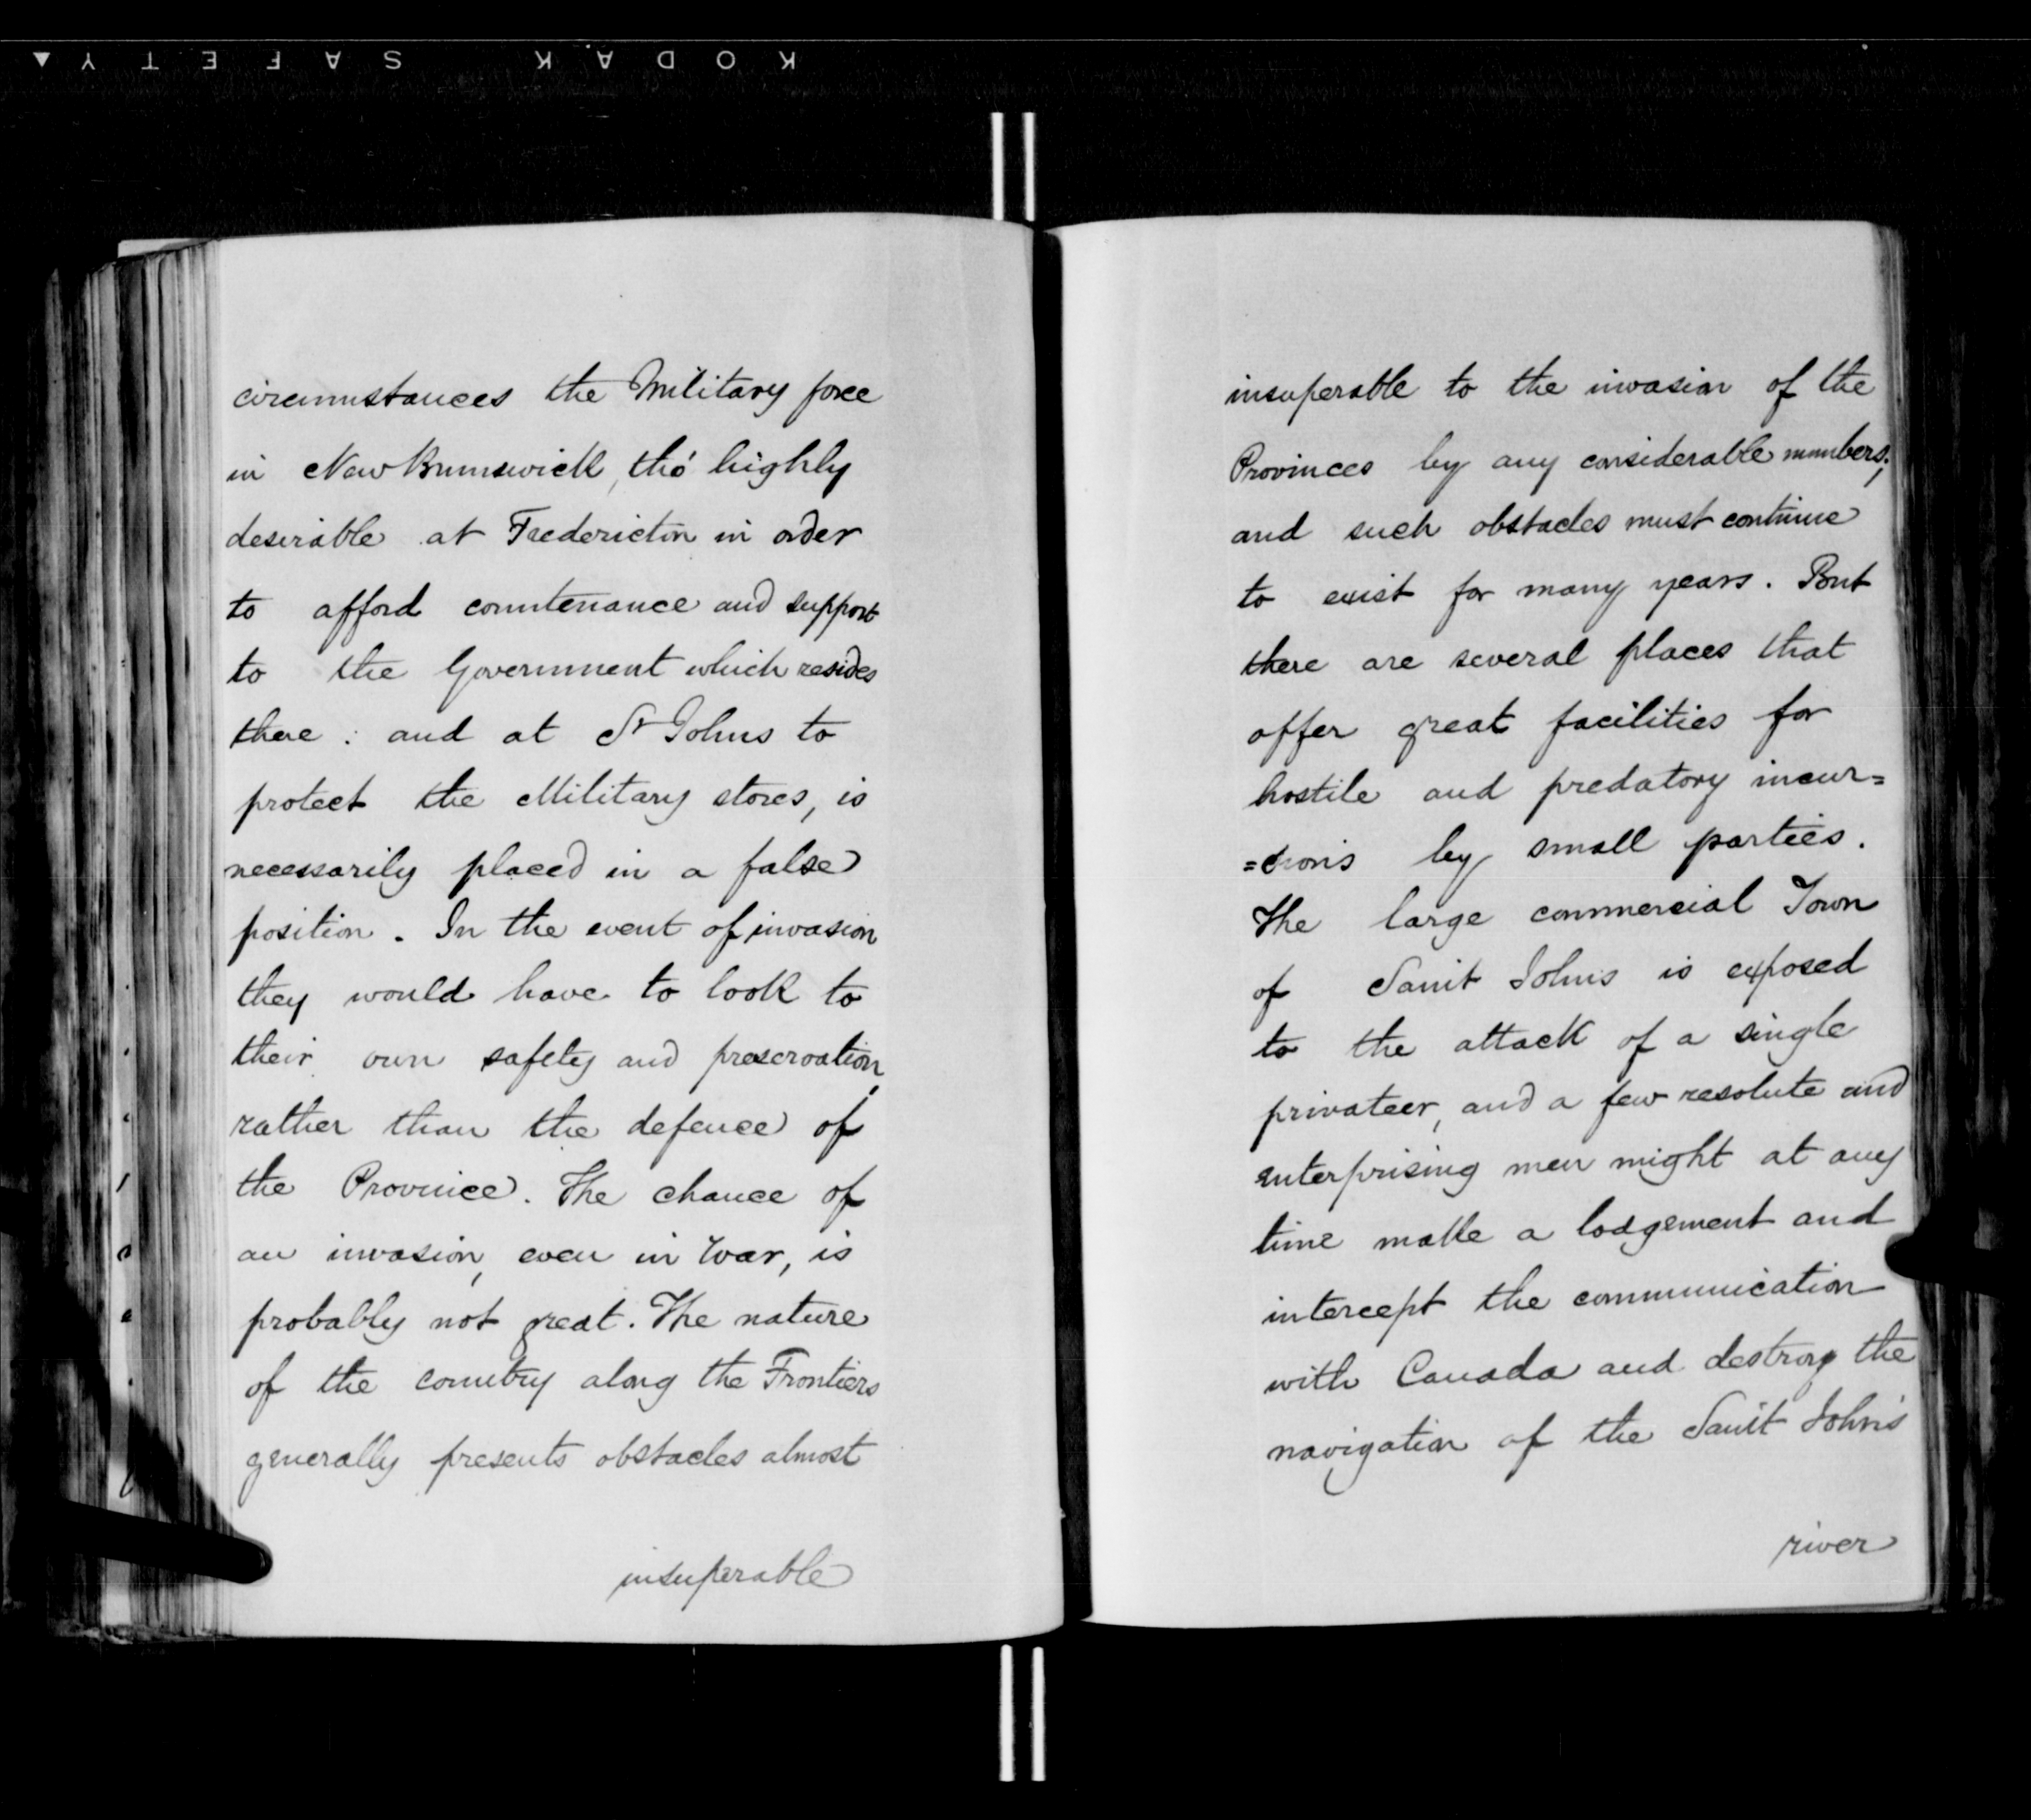 KODAK SAFETY
circumstances the Military force
in New Brunswick, tho' highly
desirable at Fredericton in order
to afford countenance and support
to the Government which resides
there : and at St Johns to
protect the Military stores, is
necessarily placed in a false
position . In the event of invasion
they would have to look to
their own safety and preservation,
rather than the defence of
the Province. The chance of
an invasion, even in War, is
probably not great. The nature
of the country along the Frontiers
generally presents obstacles almost
insuperable
insuperable to the invasion of the
Provinces by any considerable numbers;
and such obstacles must continue
to exist for many years. But
there are several places that
offer great facilities for
hostile and predatory incur=
=sions by small parties.
The large commercial Town
of Saint Johns is exposed
to the attack of a single
privateer, and a few resolute and
enterprising men might at any
time make a lodgement and
intercept the communication
with Canada and destroy the
navigation of the Saint John's
river